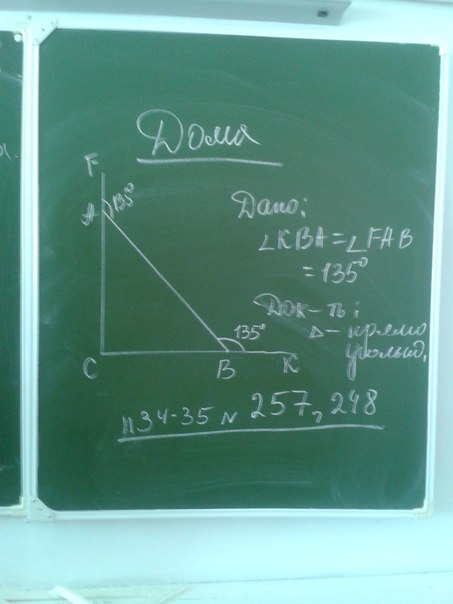 Дома
F
A 135°
Дано:
∠KBA = ∠FAB
= 135°
Док-ть:
Δ - прямо
угольный,
135°
C B K
п34-35 № 257, 248